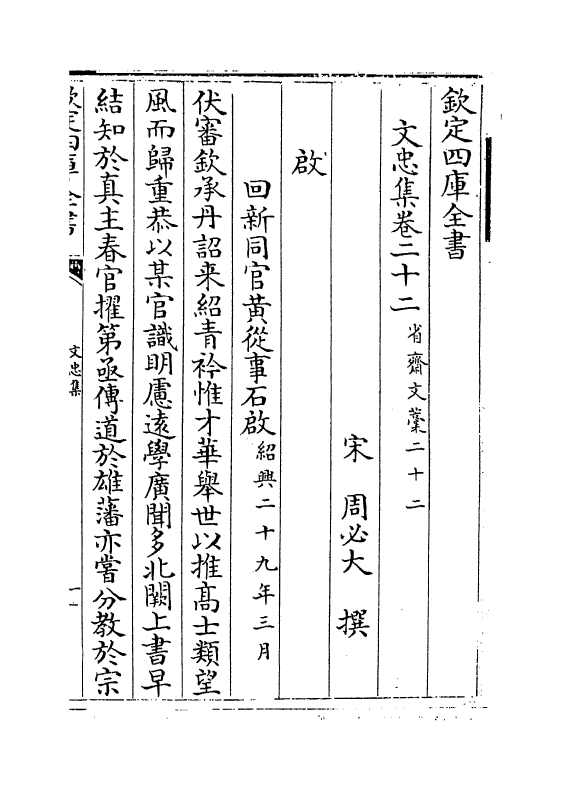 欽定四庫全書
文忠集卷二十二 省齋文藁二十二
宋 周必大 撰
啟
回新同官黃從事石啟 紹興二十九年三月
伏審欽承丹詔来紹青衿惟才華舉世以推髙士類望
風而歸重恭以某官識明慮逺學廣聞多北闕上書早
結知於真主春官擢第亟傳道於雄藩亦嘗分教於宗
欽定四庫全書
文忠集
一